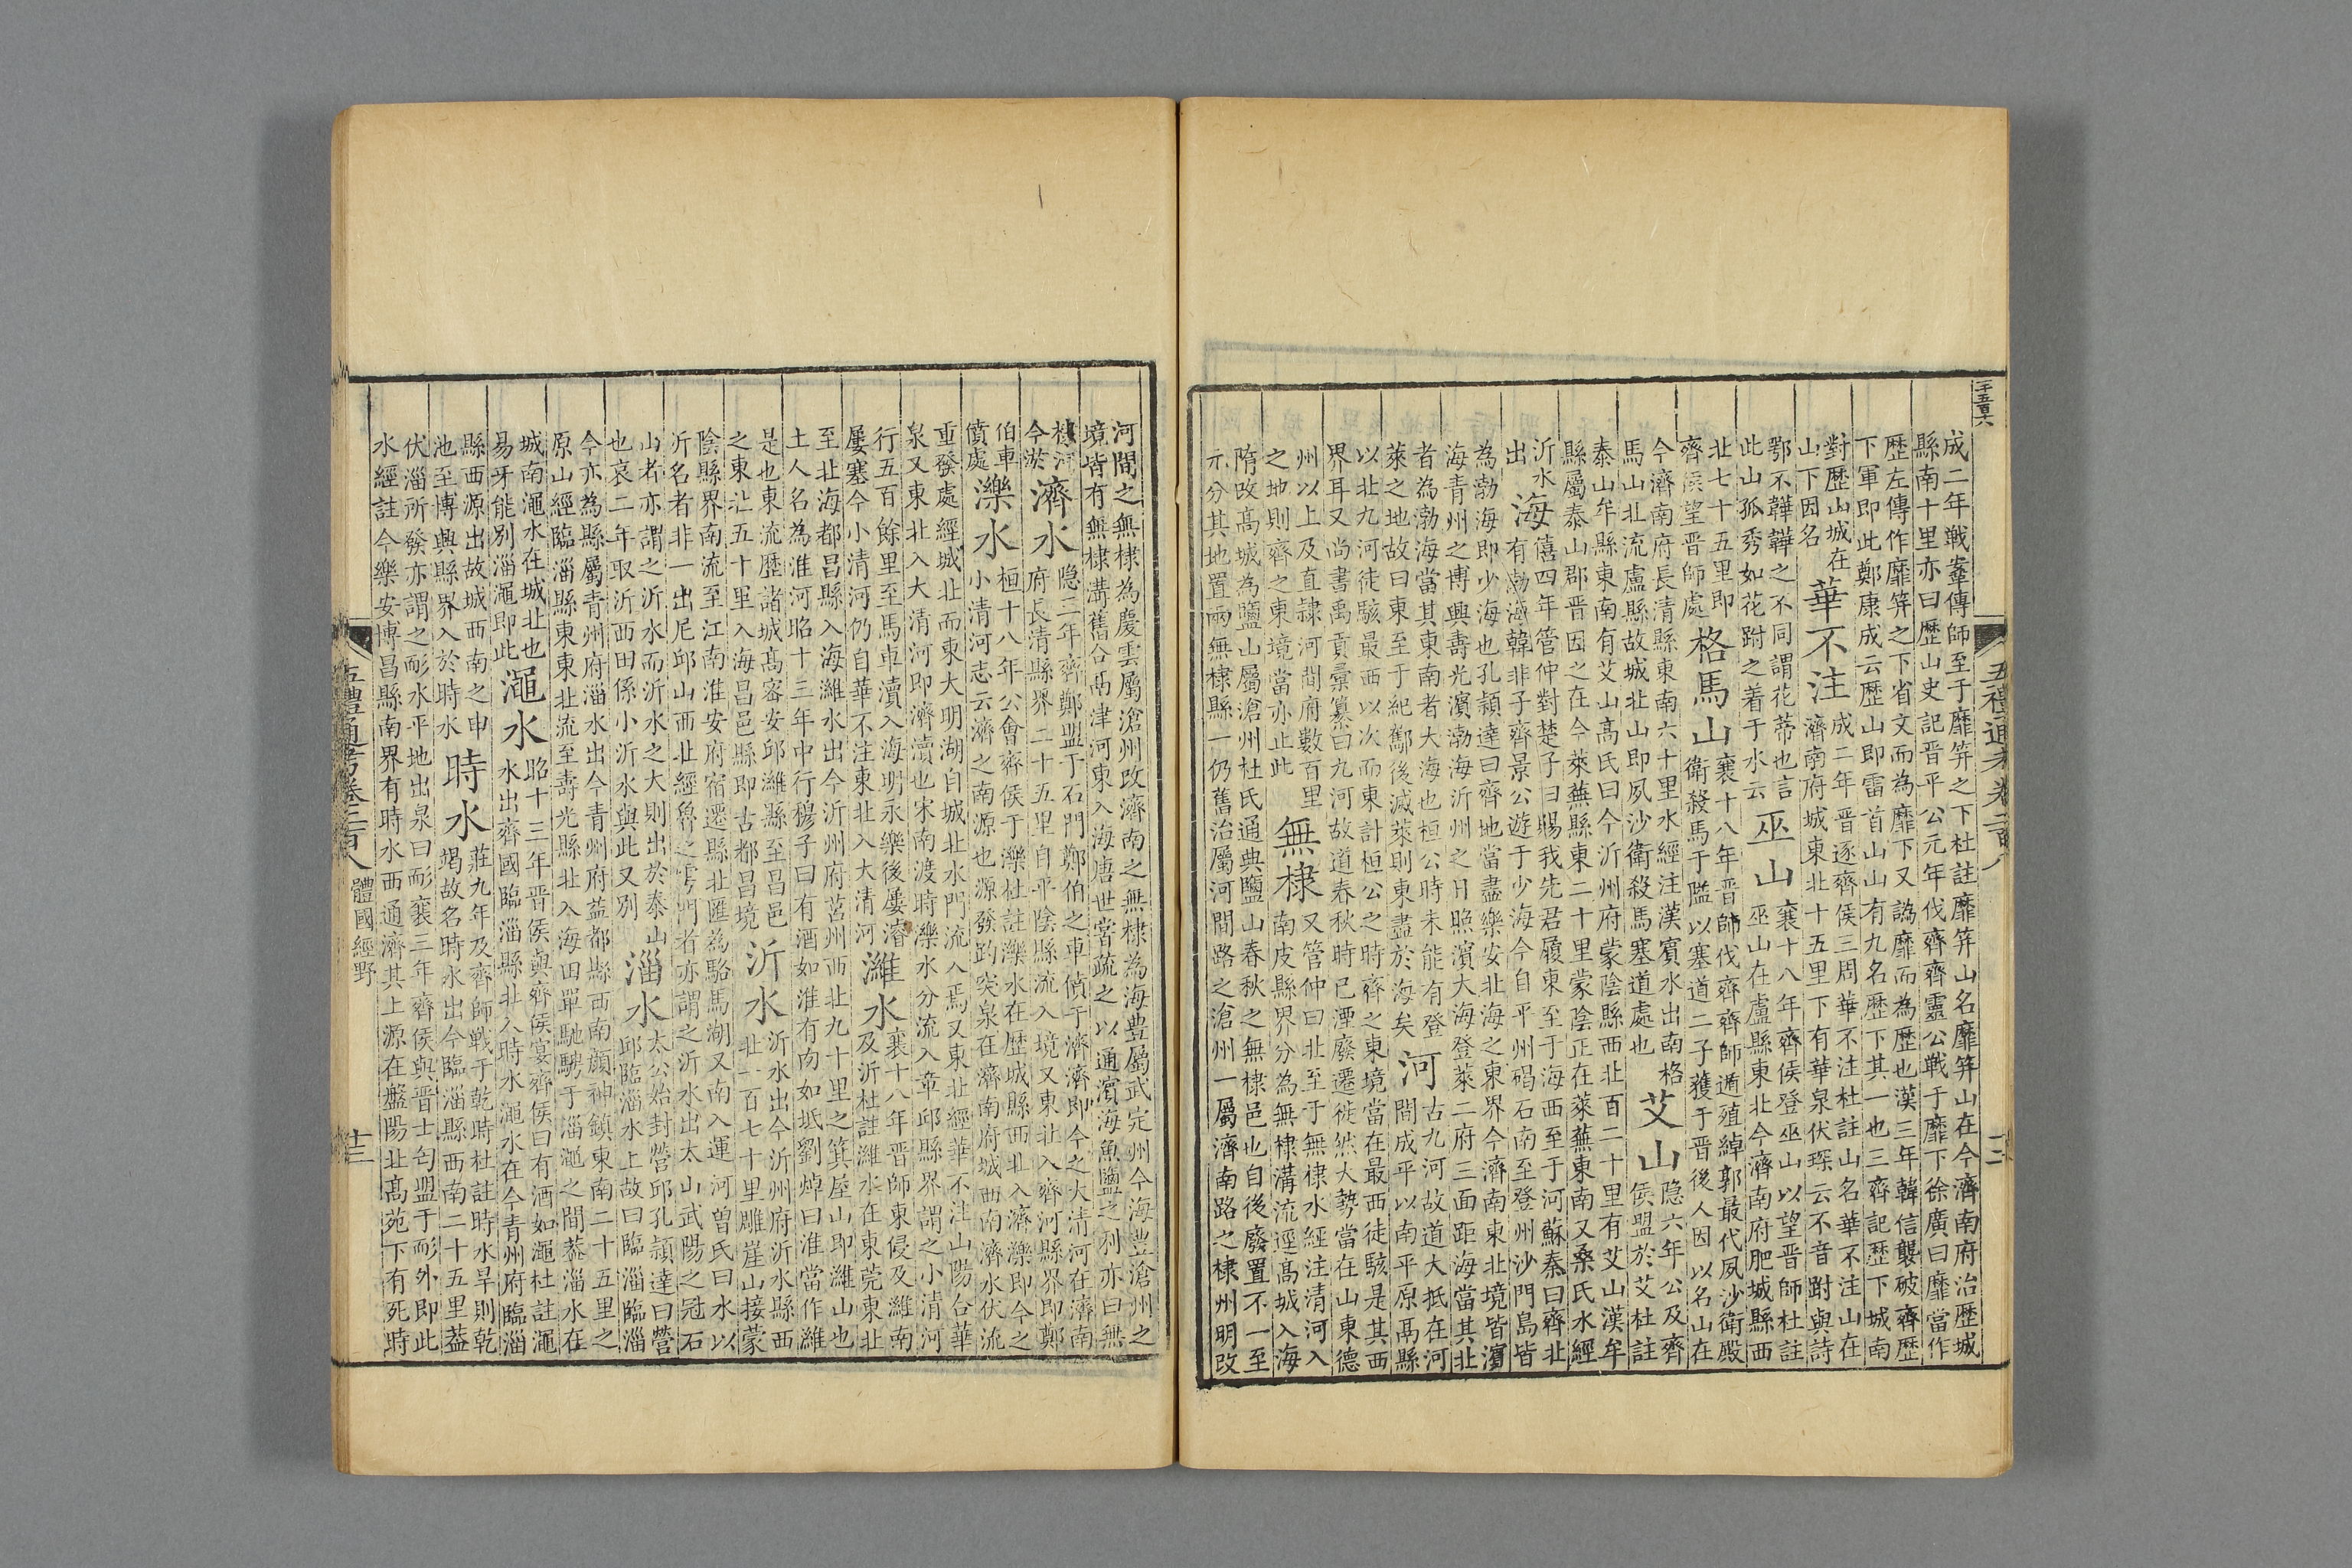 成二年戰鞌傳師至于靡笄之下杜註靡笄山名靡笄山在今濟南府治歷城
縣南十里亦曰歷山史記晉平公元年伐齊齊靈公戰于靡下徐廣曰靡當作
歷左傳作靡笄之下省文而為靡下又譌靡而為歷也漢三年韓信襲破齊歷
下軍即此鄭康成云歷山即雷首山山有九名歷下其一也三齊記歷下城南
對歷山城在
山下因名
華不注
成二年晉逐齊侯三周華不注杜註山名華不注山在
濟南府城東北十五里下有華泉伏琛云不音跗與詩
鄂不韡韡之不同謂花蒂也言
此山孤秀如花跗之着于水云
巫山
襄十八年齊侯登巫山以望晉師杜註
巫山在盧縣東北今濟南府肥城縣西
北七十五里即
齊侯望晉師處
格馬山
襄十八年晉師伐齊齊師遁殖綽郭最代夙沙衛殿
衛殺馬于隘以塞道二子獲于晉後人因以名山在
今濟南府長清縣東南六十里水經注漢賓水出南格
馬山北流盧縣故城北山即夙沙衛殺馬塞道處也
艾山
隐六年公及齊
侯盟於艾杜註
泰山牟縣東南有艾山高氏曰今沂州府蒙陰縣西北百二十里有艾山漢牟
縣屬泰山郡晉因之在今萊蕪縣東二十里蒙陰正在萊蕪東南又桑氏水經
沂水
出
海
僖四年管仲對楚子曰賜我先君履東至于海西至于河蘇秦曰齊北
有渤海韓非子齊景公遊于少海今自平州碣石南至登州沙門島皆
為渤海即少海也孔頴達曰齊地當盡樂安北海之東界今濟南東北境皆濱
海青州之博興壽光濱渤海沂州之日照濱大海登萊二府三面距海當其北
者為渤海當其東南者大海也桓公時未能有登
萊之地故曰東至于紀酅後滅萊則東盡於海矣
河
古九河故道大抵在河
間成平以南平原鬲縣
以北九河徒駭最西以次而東計桓公之時齊之東境當在最西徒駭是其西
界耳又尚書禹貢彙纂曰九河故道春秋時已湮廢遷徙然大勢當在山東德
州以上及直隷河間府數百里
之地則齊之東境當亦止此
無棣
又管仲曰北至于無棣水經注清河入
南皮縣界分為無棣溝流逕高城入海
隋改高城為鹽山屬滄州杜氏通典鹽山春秋之無棣邑也自後廢置不一至
元分其地置兩無棣縣一仍舊治屬河間路之滄州一屬濟南路之棣州明改
河間之無棣為慶雲屬滄州改濟南之無棣為海豊屬武定州今海豊滄州之
境皆有無棣溝舊合鬲津河東入海唐世嘗疏之以通濱海魚鹽之利亦曰無
棣河
今淤
濟水
隐三年齊鄭盟于石門鄭伯之車僨于濟濟即今之大清河在濟南
府長清縣界二十五里自平陰縣流入境又東北入齊河縣界即鄭
伯車
僨處
濼水
桓十八年公會齊侯于濼杜註濼水在歷城縣西北入濟濼即今之
小清河志云濟之南源也源發趵突泉在濟南府城西南濟水伏流
重發處經城北而東大明湖自城北水門流入焉又東北經華不注山陽合華
泉又東北入大清河即濟瀆也宋南渡時濼水分流入章邱縣界謂之小清河
行五百餘里至馬車瀆入海明永樂後屢濬
屢塞今小清河仍自華不注東北入大清河
濰水
襄十八年晉師東侵及濰南
及沂杜註濰水在東莞東北
至北海都昌縣入海濰水出今沂州府莒州西北九十里之箕屋山即濰山也
土人名為淮河昭十三年中行穆子曰有酒如淮有肉如坻劉焯曰淮當作濰
是也東流歷諸城高密安邱濰縣至昌邑
之東北五十里入海昌邑縣即古都昌境
沂水
沂水出今沂州府沂水縣西
北一百七十里雕崖山接蒙
陰縣界南流至江南淮安府宿遷縣北匯為駱馬湖又南入運河曾氏曰水以
沂名者非一出尼邱山西北經魯之雩門者亦謂之沂水出太山武陽之冠石
山者亦謂之沂水而沂水之大則出於泰山
也哀二年取沂西田係小沂水與此又別
淄水
太公始封營邱孔頴達曰營
邱臨淄水上故曰臨淄臨淄
今亦為縣屬青州府淄水出今青州府益都縣西南顏神鎮東南二十五里之
原山經臨淄縣東東北流至壽光縣北入海田單馳騁于淄澠之間葢淄水在
城南澠水在城北也
易牙能別淄澠即此
澠水
昭十三年晉侯與齊侯宴齊侯曰有酒如澠杜註澠
水出齊國臨淄縣北入時水澠水在今青州府臨淄
縣西源出故城西南之申
池至博興縣界入於時水
時水
莊九年及齊師戰于乾時杜註時水旱則乾
竭故名時水出今臨淄縣西南二十五里葢
伏淄所發亦謂之耏水平地出泉曰耏襄三年齊侯與晉士匄盟于耏外即此
水經註今樂安博昌縣南界有時水西通濟其上源在盤陽北高苑下有死時
五禮通考卷二百八
體國經野